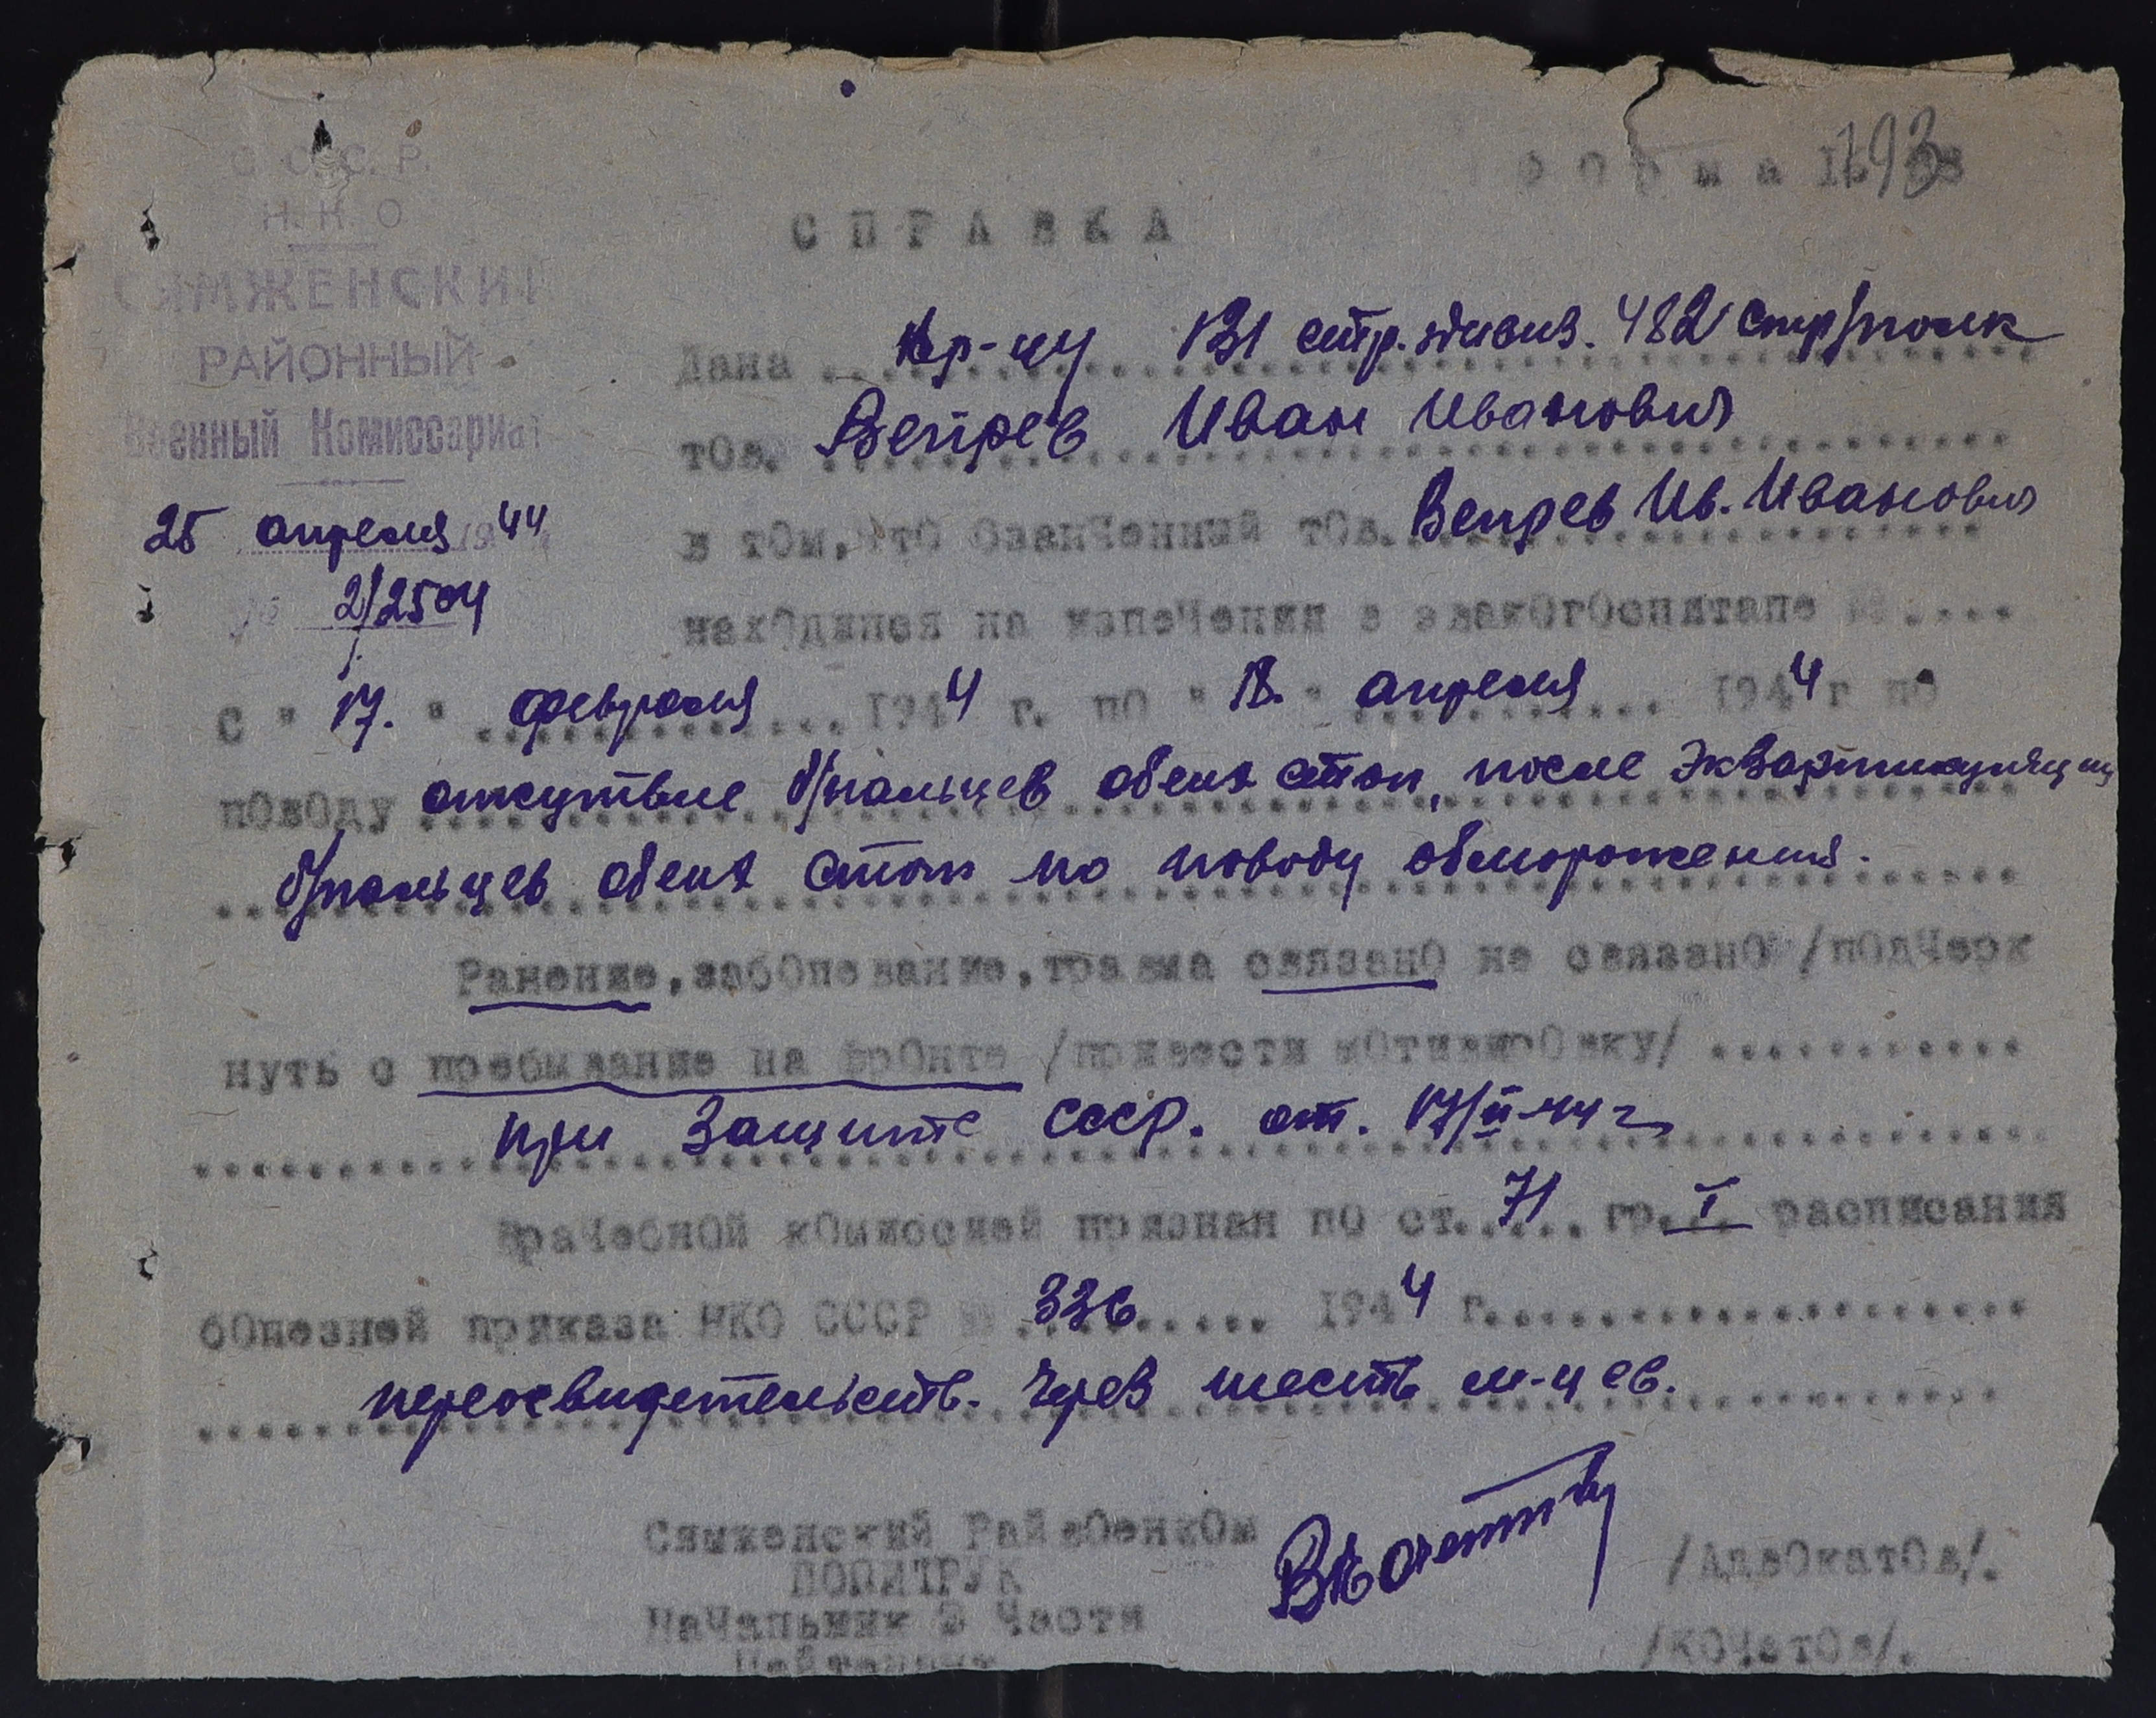 С. С. С. Р.
Н. К. О
СЯМЖЕНСКИЙ
РАЙОННЫЙ
Военный Комиссариат
25 апреля 1944
№ 2/2504
Форма
193
СПРАВКА
Дана кр-цу 131 стр. дивиз. 482 стр/полк
тов. Вепрев Иван Иванович
в том, что означенный тов. Вепрев Ив. Иванович
находился на излечении в эвакогоспитале №....
с "17." февраля 1944 г. по "18." апреля 1944 г по
поводу отсутвие б/пальцев обеих стоп, после экзартикуляции
б/пальцев обеих стоп по поводу обморожения.
Ранение, заболевание, травма связано не связано /подчерк
нуть с пребывание на фронте /привести мотивировку/
при защите СССР. от. 17/II-44 г
Врачебной комиссией признан по ст. 71 гр. I расписания
болезней приказа НКО СССР № 336 1944 г.
переосвидетельств. через шесть м-цев.
Сямженский Райвоенком
ПОЛИТРУК
/Адвокатов/.
Начальник 2 части
Лейтенант
/Кочетов/.